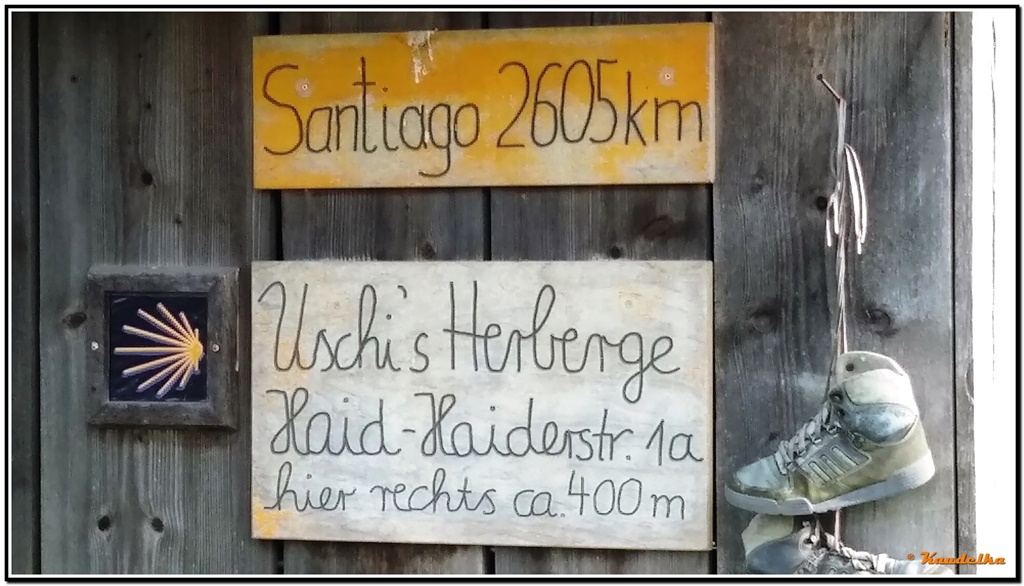 Santiago 2605km
Uschi's Herberge
Haid-Haiderstr. 1a
hier rechts ca. 400m
* Kaudelka